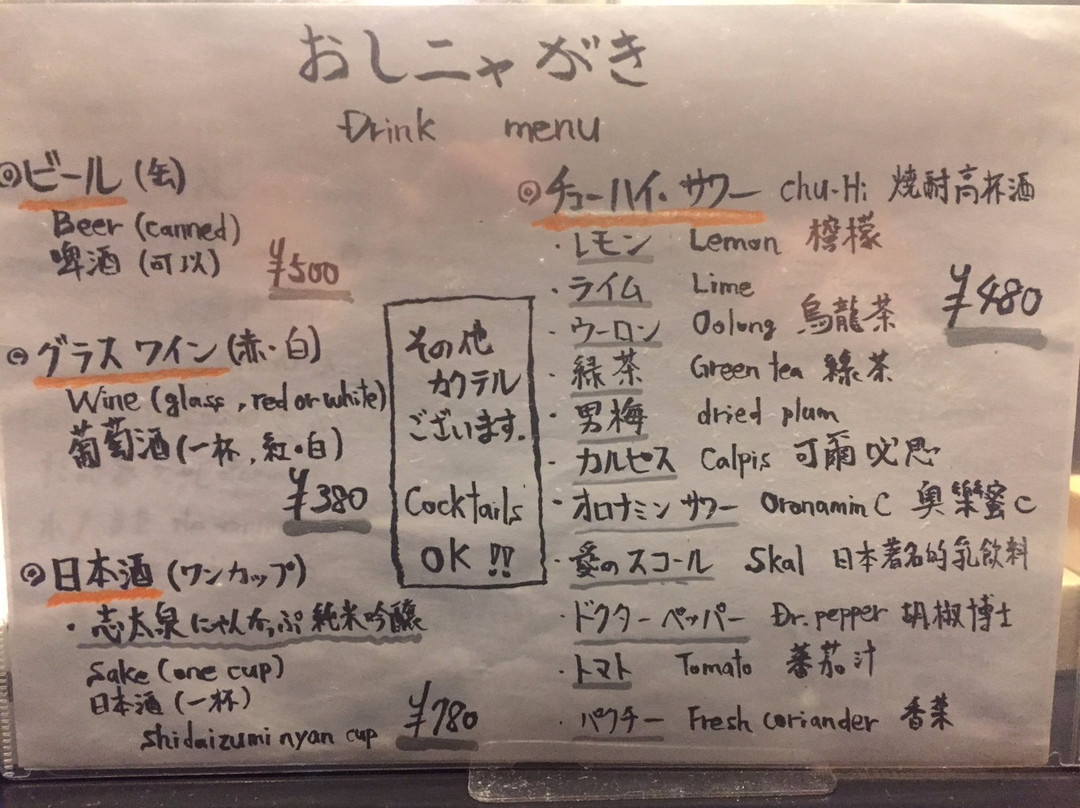 おしニャがき
Drink menu
◎ビール (缶)
Beer (canned)
啤酒 (可以)
¥500
◎グラスワイン (赤・白)
Wine (glass, red or white)
葡萄酒 (一杯, 紅・白)
¥380
◎日本酒 (ワンカップ)
・志太泉にゃんかっぷ純米吟醸
Sake (one cup)
日本酒 (一杯)
shidaizumi nyan cup
¥780
その他
カクテル
ございます.
Cocktails
OK !!
◎チューハイ・サワー chu-Hi 焼耐高杯酒
・レモン Lemon 檸檬
・ライム Lime
・ウーロン Oolong 烏龍茶
¥480
・緑茶 Green tea 綠茶
・男梅 dried plum
・カルピス Calpis 可爾必思
・オロナミンサワー Oronamin C 奥樂蜜C
・愛のスコール Skal 日本著名的乳飲料
・ドクターペッパー Dr. pepper 胡椒博士
・トマト Tomato 蕃茄汁
・パクチー Fresh coriander 香菜